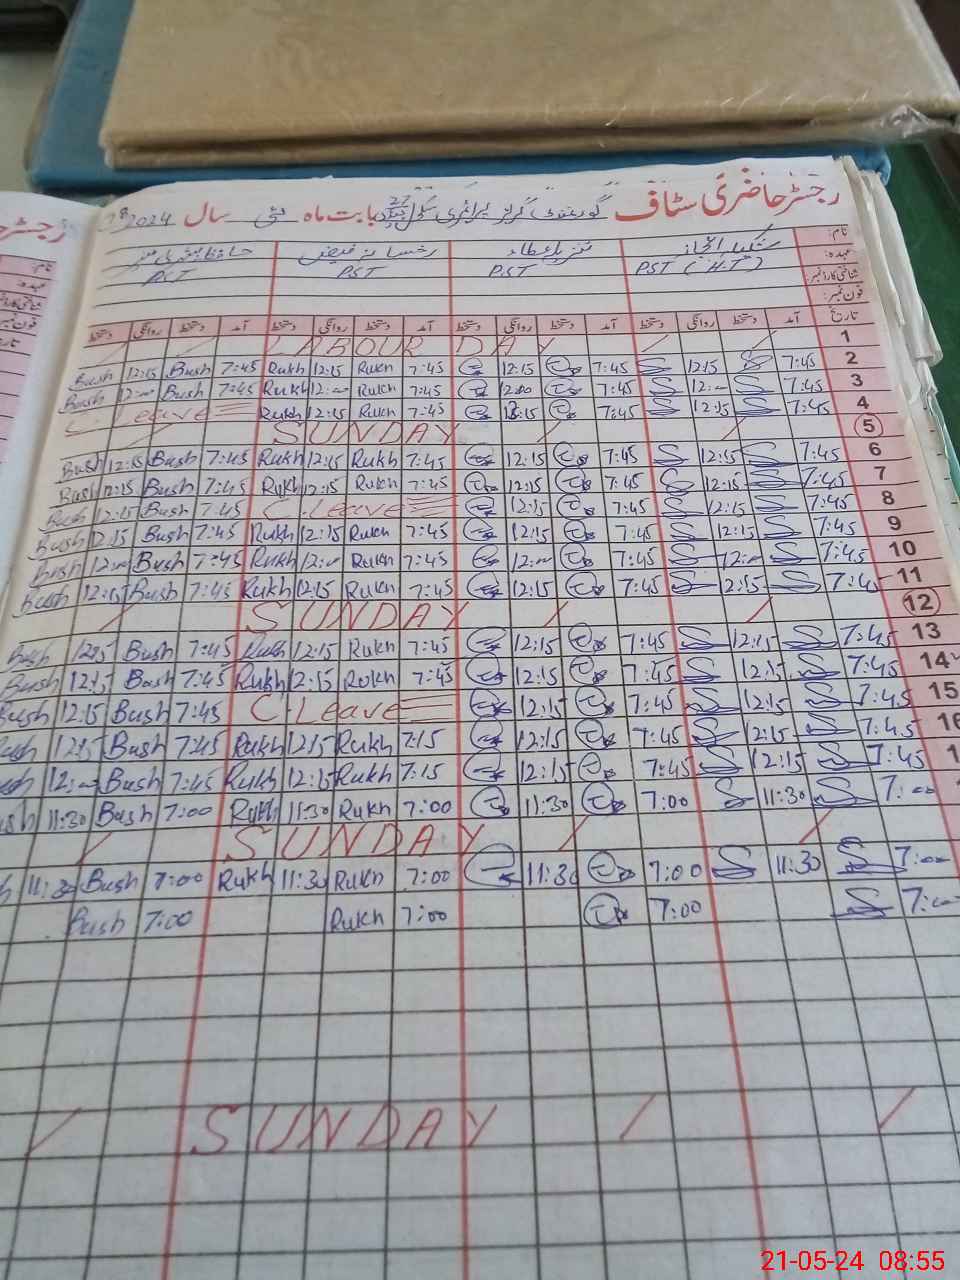 رجسٹر حاضری سٹاف گورنمنٹ گرلز پرائمری سکول 27 بابت ماہ مئی سال 2024
نام:
عہدہ: PST (H.T) PST PST PST
شناختی کارڈ نمبر:
فون نمبر:
تاریخ آمد دستخط روانگی دستخط آمد دستخط روانگی دستخط آمد دستخط روانگی دستخط آمد دستخط روانگی دستخط
LABOUR DAY 1
Bush 12:15 Bush 7:45 Rukh 12:15 Rukh 7:45 12:15 7:45 12:15 7:45 2
Bush Bush 7:45 Rukh Rukh 7:45 12:00 7:45 7:45 3
C. Leave Rukh 12:15 Rukh 7:45 7:45 12:15 7:45 4
SUNDAY 5
Bush 12:15 Bush 7:45 Rukh 12:15 Rukh 7:45 12:15 7:45 12:15 7:45 6
Bush 12:15 Bush 7:45 Rukh 12:15 Rukh 7:45 12:15 7:45 12:15 7:45 7
Bush 12:15 Bush 7:45 C. Leave 12:15 7:45 12:15 7:45 8
Bush 12:15 Bush 7:45 Rukh 12:15 Rukh 7:45 12:15 7:45 12:15 7:45 9
Bush Bush 7:45 Rukh Rukh 7:45 7:45 7:45 10
Bush 12:15 Bush 7:45 Rukh 12:15 Rukh 7:45 12:15 7:45 12:15 7:45 11
SUNDAY 12
Bush 12:15 Bush 7:45 Rukh 12:15 Rukh 7:45 12:15 7:45 12:15 7:45 13
Bush 12:15 Bush 7:45 Rukh 12:15 Rukh 7:45 12:15 7:45 12:15 7:45 14
Bush 12:15 Bush 7:45 C. Leave 12:15 7:45 12:15 7:45 15
12:15 Bush 7:45 Rukh 12:15 Rukh 7:15 12:15 7:45 12:15 7:45 16
Bush 7:45 Rukh 12:15 Rukh 7:15 12:15 7:45 12:15 7:45
11:30 Bush 7:00 Rukh 11:30 Rukh 7:00 11:30 7:00 11:30 7:00
SUNDAY
11:30 Bush 7:00 Rukh 11:30 Rukh 7:00 11:30 7:00 11:30 7:00
Bush 7:00 Rukh 7:00 7:00 7:00
SUNDAY
21-05-24 08:55